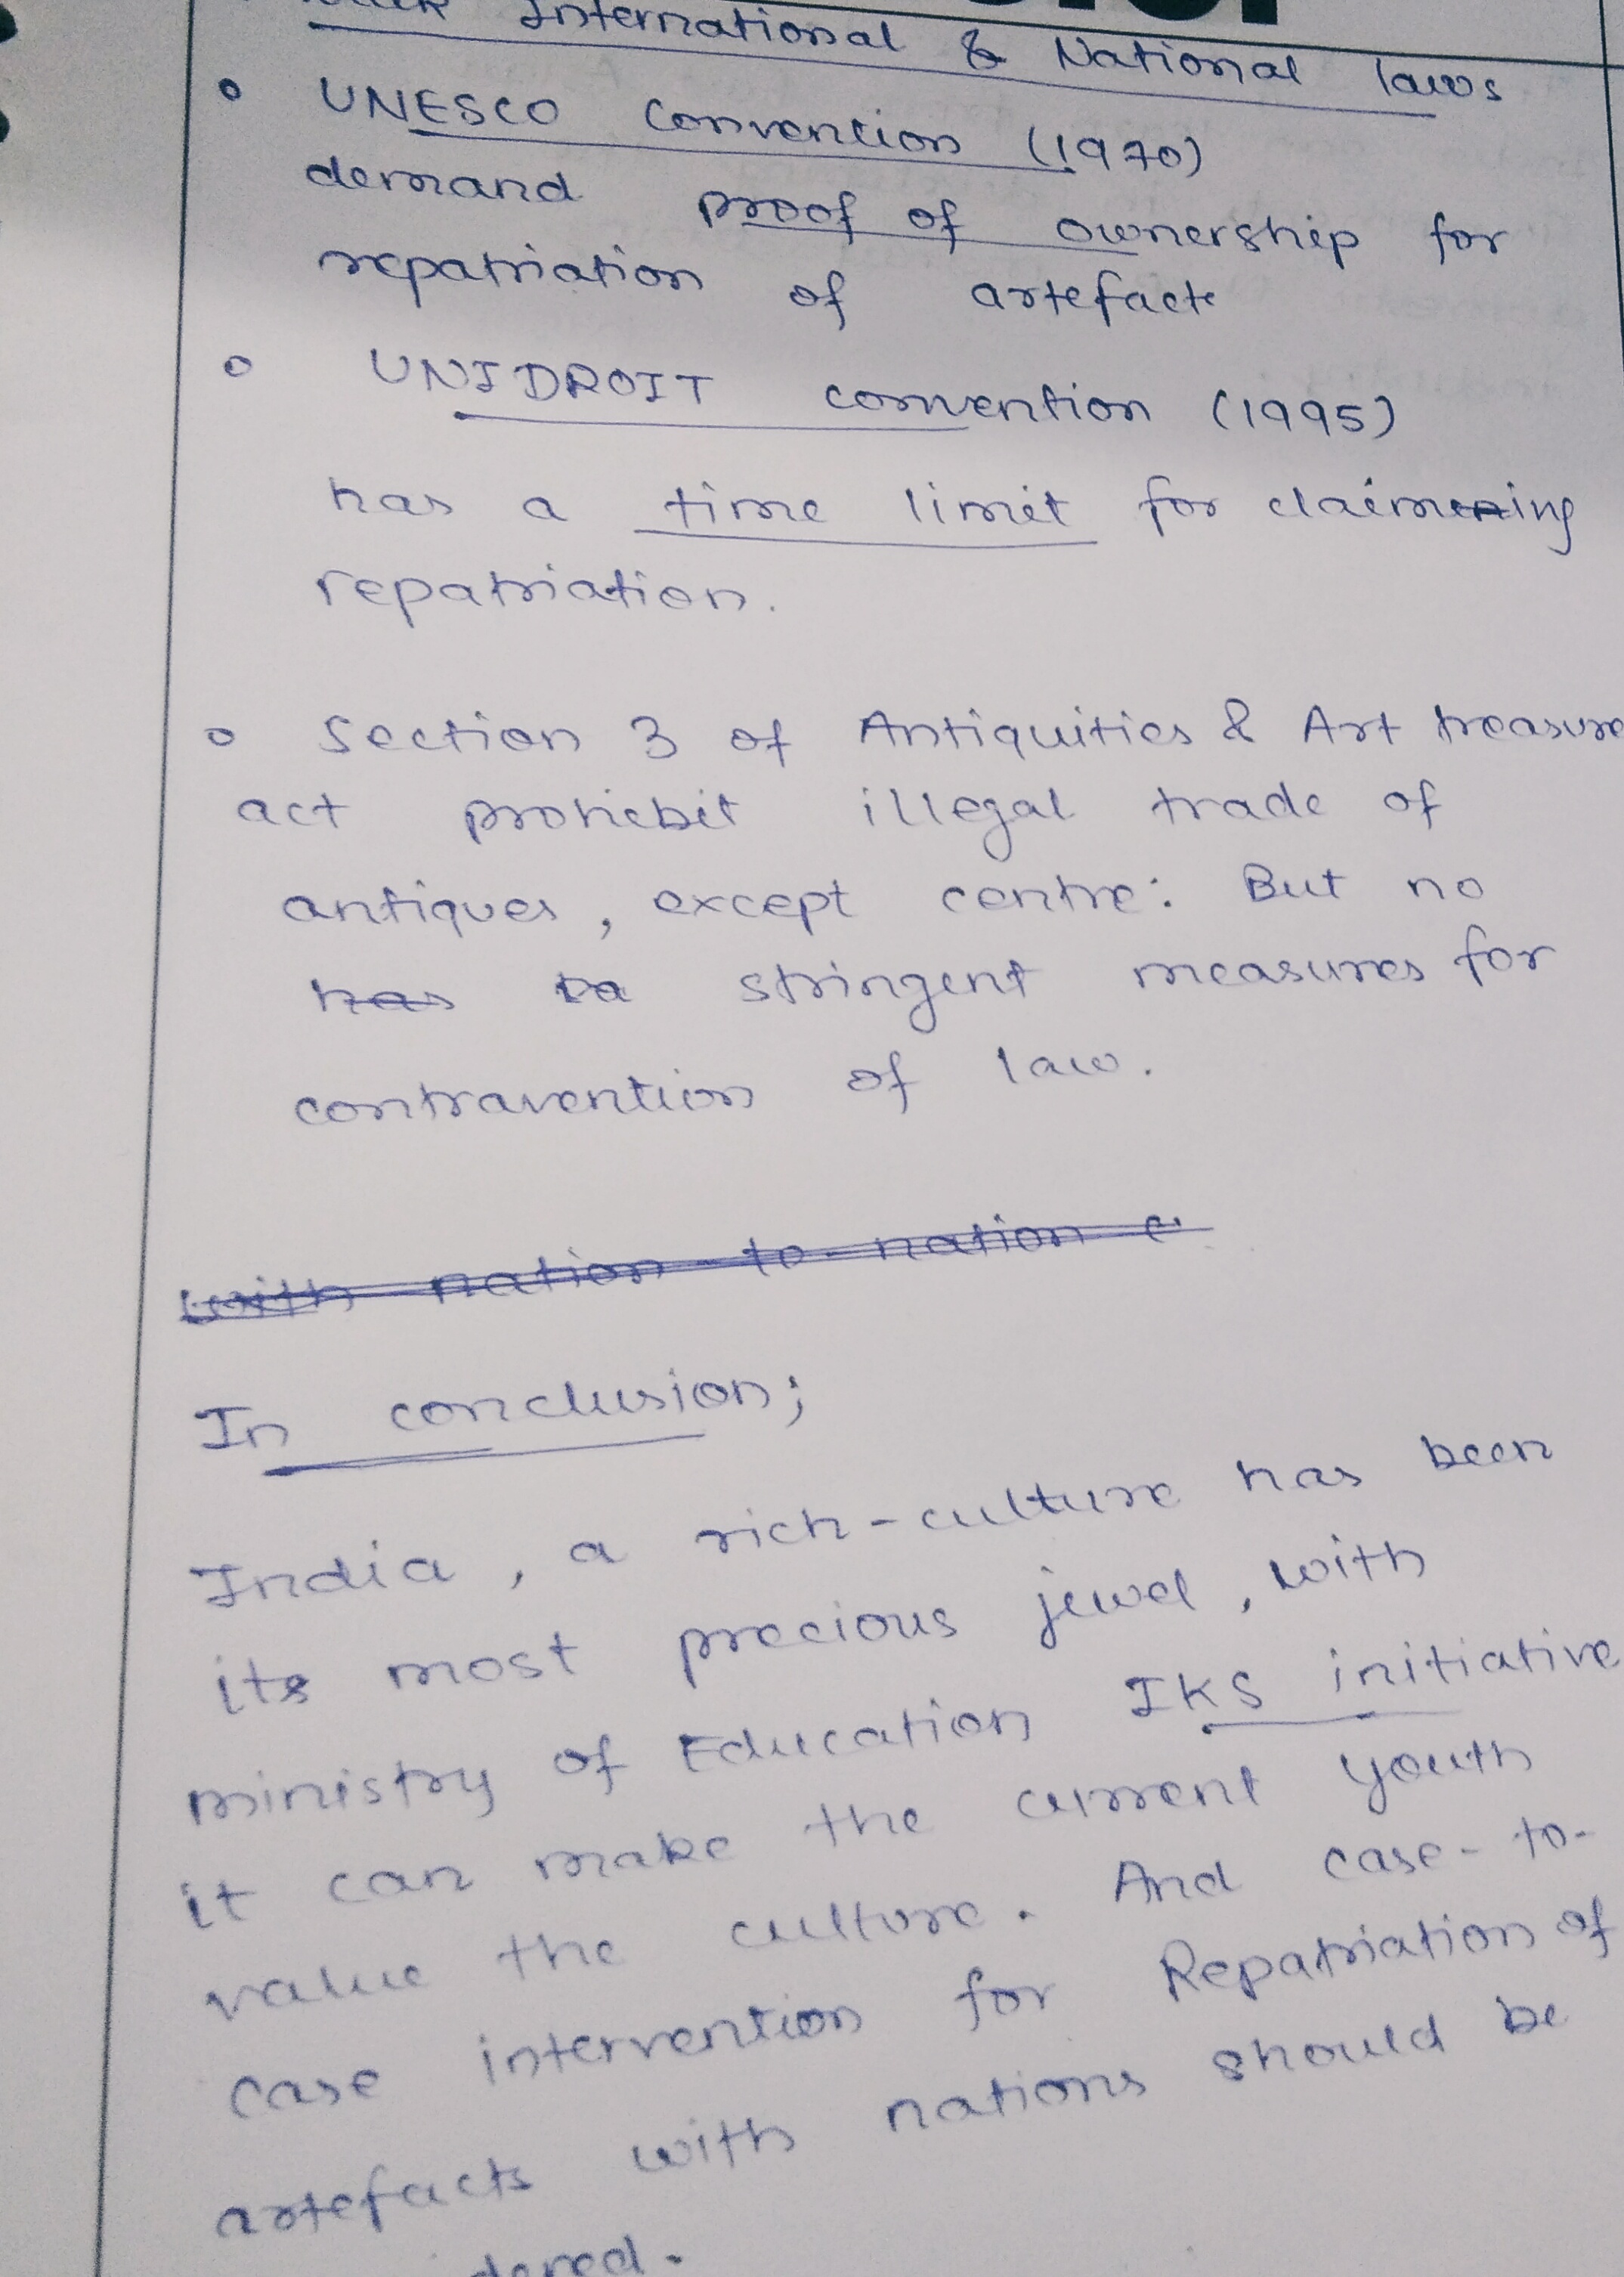 International & National laws
o UNESCO Convention (1970)
demand proof of ownership for
repatriation of artefacts
o UNIDROIT convention (1995)
has a time limit for claiming
repatriation.
o Section 3 of Antiquities & Art treasure
act prohibit illegal trade of
antiques, except centre: But no
has to stringent measures for
contravention of law.
with nation-to-nation c
In conclusion;
India, a rich-culture has been
its most precious jewel, with
ministry of Education IKS initiative
it can make the current youth
value the culture. And case-to-
case intervention for Repatriation of
artefacts with nations should be